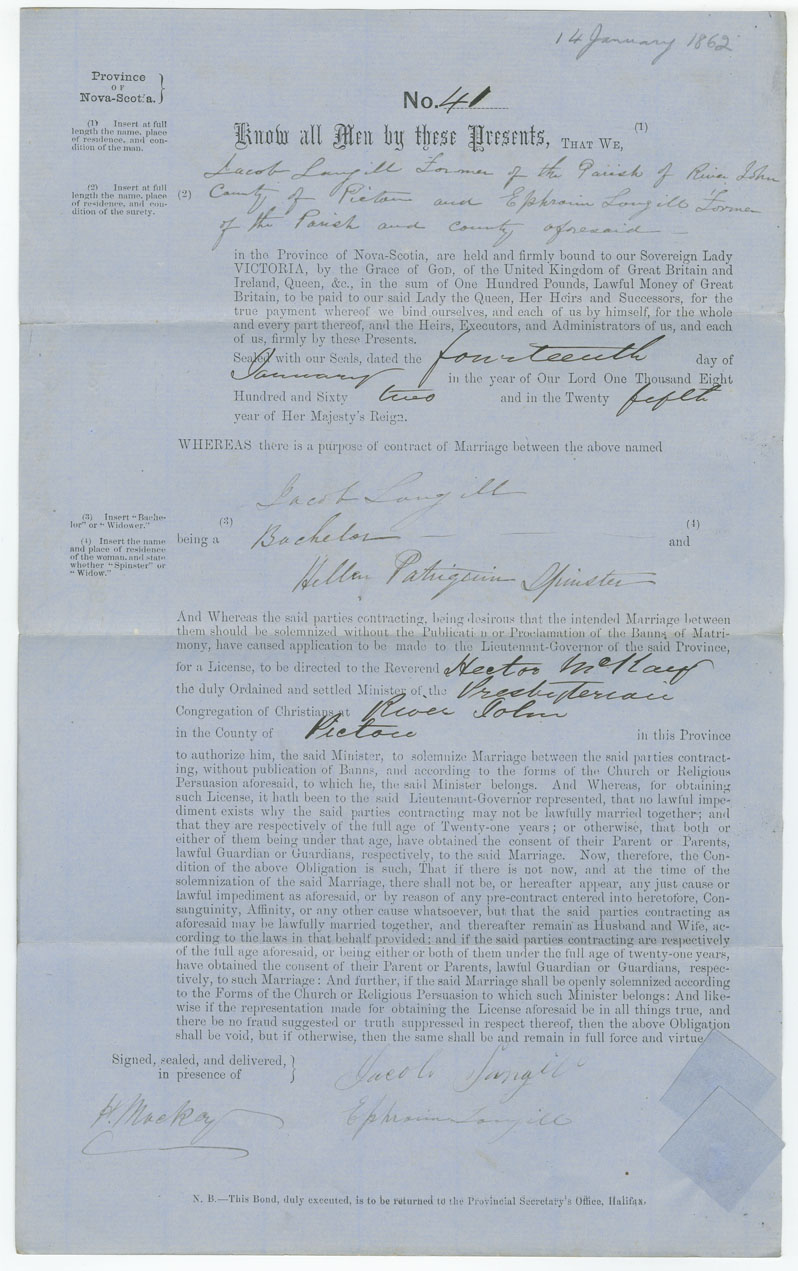 14 January 1862
Province
OF
Nova-Scotia.
No. 41
(1) Insert at full
length the name, place
of residence, and con-
dition of the man.
Know all Men by these Presents, THAT WE, (1)
Jacob Langill Farmer of the Parish of River John
(2) Insert at full
length the name, place
of residence, and con-
dition of the surety.
(2) County of Pictou and Ephraim Langill Farmer
of the Parish and county aforesaid
in the Province of Nova-Scotia, are held and firmly bound to our Sovereign Lady
VICTORIA, by the Grace of God, of the United Kingdom of Great Britain and
Ireland, Queen, &c., in the sum of One Hundred Pounds, Lawful Money of Great
Britain, to be paid to our said Lady the Queen, Her Heirs and Successors, for the
true payment whereof we bind ourselves, and each of us by himself, for the whole
and every part thereof, and the Heirs, Executors, and Administrators of us, and each
of us, firmly by these Presents.
Sealed with our Seals, dated the fourteenth day of
January in the year of Our Lord One Thousand Eight
Hundred and Sixty two and in the Twenty fifth
year of Her Majesty's Reign.
WHEREAS there is a purpose of contract of Marriage between the above named
Jacob Langill
(3) Insert "Bache-
lor" or "Widower."
(3)
being a Bachelor
(4)
and
(4) Insert the name
and place of residence
of the woman, and state
whether "Spinster" or
"Widow."
Hellen Patriquin Spinster
And Whereas the said parties contracting, being desirous that the intended Marriage between
them should be solemnized without the Publicati n or Proclamation of the Banns of Matri-
mony, have caused application to be made to the Lieutenant-Governor of the said Province,
for a License, to be directed to the Reverend Hector McKay
the duly Ordained and settled Minister of the Presbyterian
Congregation of Christians at River John
in the County of Pictou in this Province
to authorize him, the said Minister, to solemnize Marriage between the said parties contract-
ing, without publication of Banns, and according to the forms of the Church or Religious
Persuasion aforesaid, to which he, the said Minister belongs. And Whereas, for obtaining
such License, it hath been to the said Lieutenant-Governor represented, that no lawful impe-
diment exists why the said parties contracting may not be lawfully married together; and
that they are respectively of the full age of Twenty-one years; or otherwise, that both or
either of them being under that age, have obtained the consent of their Parent or Parents,
lawful Guardian or Guardians, respectively, to the said Marriage. Now, therefore, the Con-
dition of the above Obligation is such, That if there is not now, and at the time of the
solemnization of the said Marriage, there shall not be, or hereafter appear, any just cause or
lawful impediment as aforesaid, or by reason of any pre-contract entered into heretofore, Con-
sanguinity, Affinity, or any other cause whatsoever, but that the said parties contracting as
aforesaid may be lawfully married together, and thereafter remain as Husband and Wife, ac-
cording to the laws in that behalf provided; and if the said parties contracting are respectively
of the full age aforesaid, or being either or both of them under the full age of twenty-one years,
have obtained the consent of their Parent or Parents, lawful Guardian or Guardians, respec-
tively, to such Marriage: And further, if the said Marriage shall be openly solemnized according
to the Forms of the Church or Religious Persuasion to which such Minister belongs: And like-
wise if the representation made for obtaining the License aforesaid be in all things true, and
there be no fraud suggested or truth suppressed in respect thereof, then the above Obligation
shall be void, but if otherwise, then the same shall be and remain in full force and virtue
Signed, sealed, and delivered,
in presence of
Jacob Langill
H. Mackay
Ephraim Langill
N. B.—This Bond, duly executed, is to be returned to the Provincial Secretary's Office, Halifax.